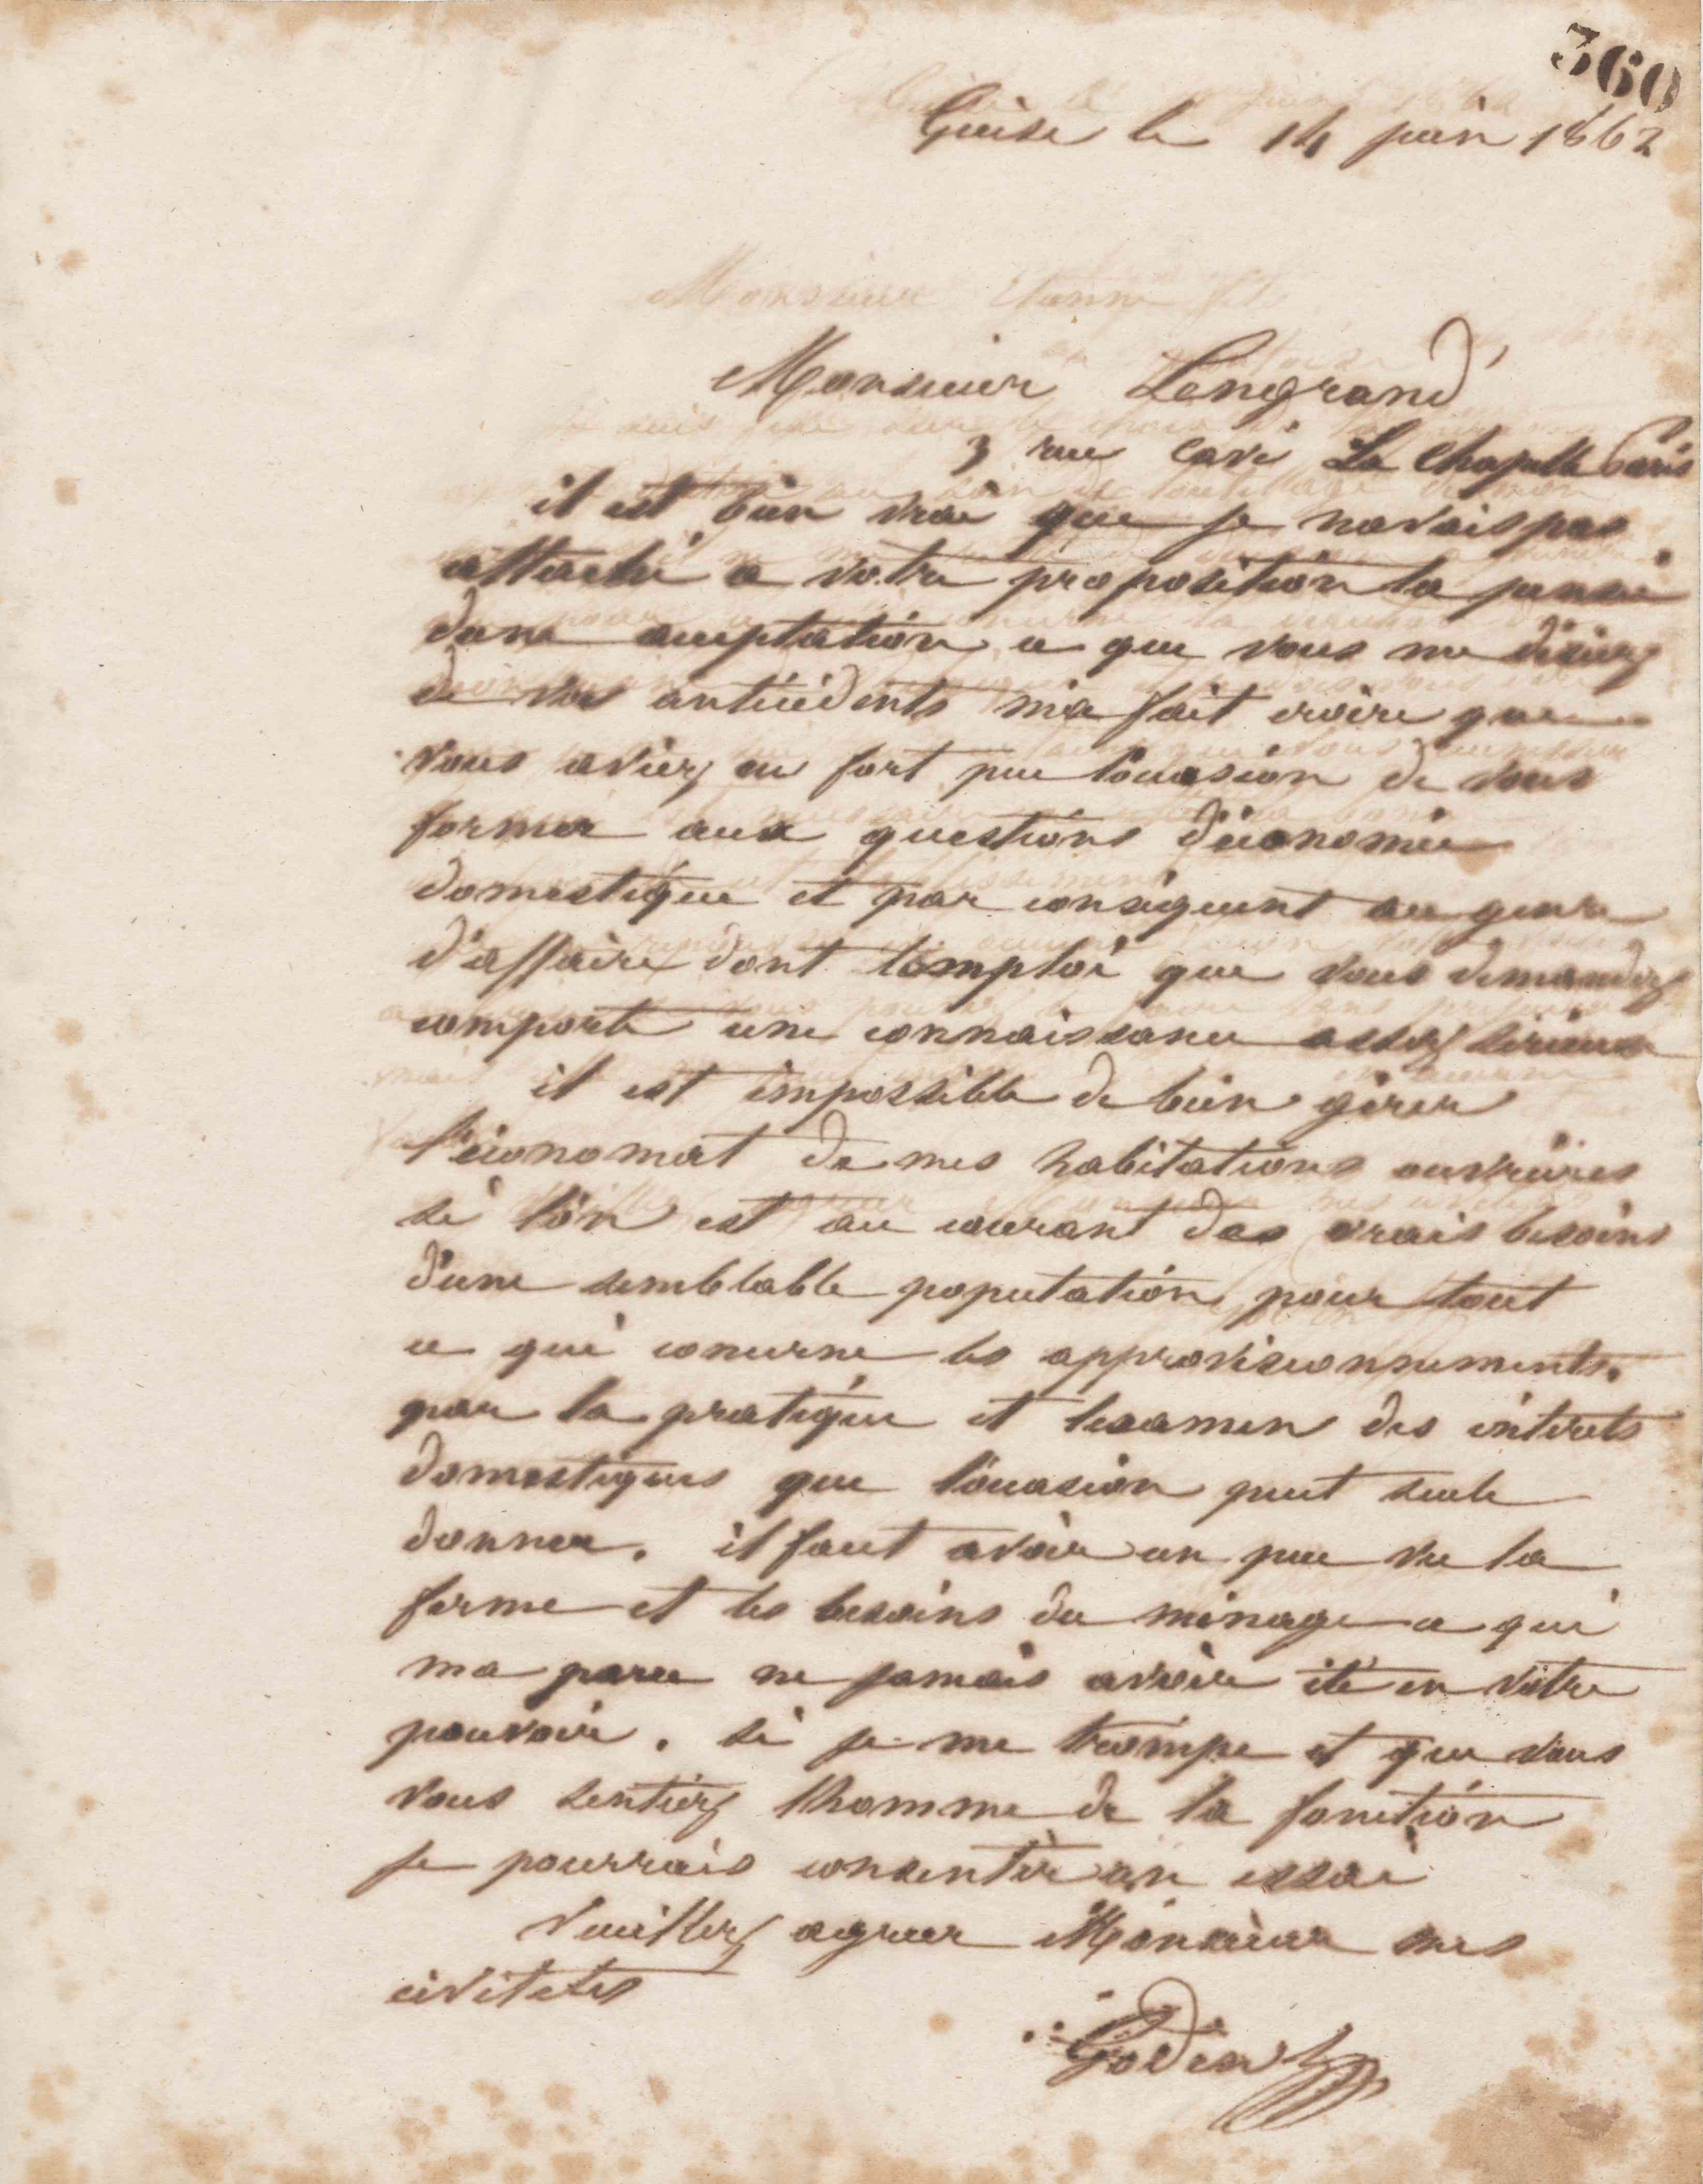 360
Guise le 14 juin 1862
Monsieur Lengrand
3 rue Cavé La Chapelle Paris
il est bien vrai que je navais pas
attaché a votre proposition la pensée
dune acceptation ce que vous me disiez
de vos antécédents m'a fait croire que
vous aviez eu fort peu l'occasion de vous
former aux questions d'économie
domestique et par conséquent au genre
d'affaire dont l'emploi que vous demandez
comporte une connaissance assez sérieuse
il est impossible de bien gérer
l'économat de mes habitations ouvrières
si l'on est au courant des vrais besoins
d'une semblable population pour tout
ce qui concerne les approvisionnements.
par la pratique et lexamen des intérets
domestiques que l'occasion peut seule
donner. il faut avoir un peu vu la
forme et les besoins du ménage ce qui
ma paru ne jamais avoir été en votre
pouvoir. si je me trompe et que vous
vous sentiez lhomme de la fonction
je pourrais consentir un essai
Veuillez agreer Monsieur mes
civilités
Godin